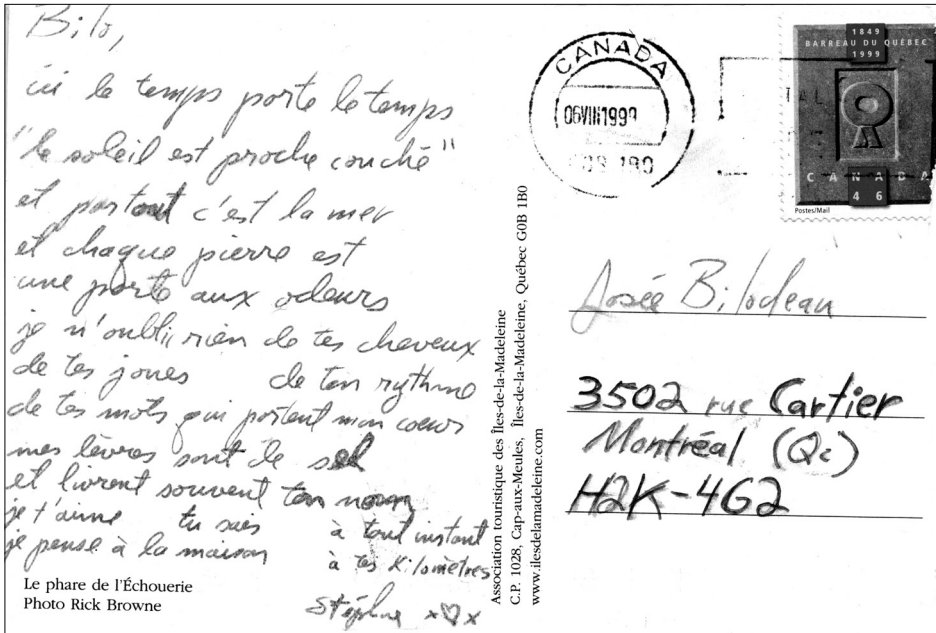 Bilo,
ici le temps porte le temps
"le soleil est proche couché"
et partout c'est la mer
et chaque pierre est
une porte aux odeurs
je n'oubli rien de tes cheveux
de tes joues de ton rythme
de tes mots qui portent mon coeur
mes lèvres sont de sel
et livrent souvent ton nom
je t'aime tu sais à tout instant
je pense à la maison à tes kilomètres
Stéphane x♡x
Le phare de l'Échouerie
Photo Rick Browne
Association touristique des Îles-de-la-Madeleine
C.P. 1028, Cap-aux-Meules, Îles-de-la-Madeleine, Québec G0B 1B0
www.ilesdelamadeleine.com
CANADA
06VIII1999
1B0
1849
BARREAU DU QUÉBEC
1999
CANADA
46
Postes/Mail
Josée Bilodeau
3502 rue Cartier
Montréal (Qc)
H2K-4G2